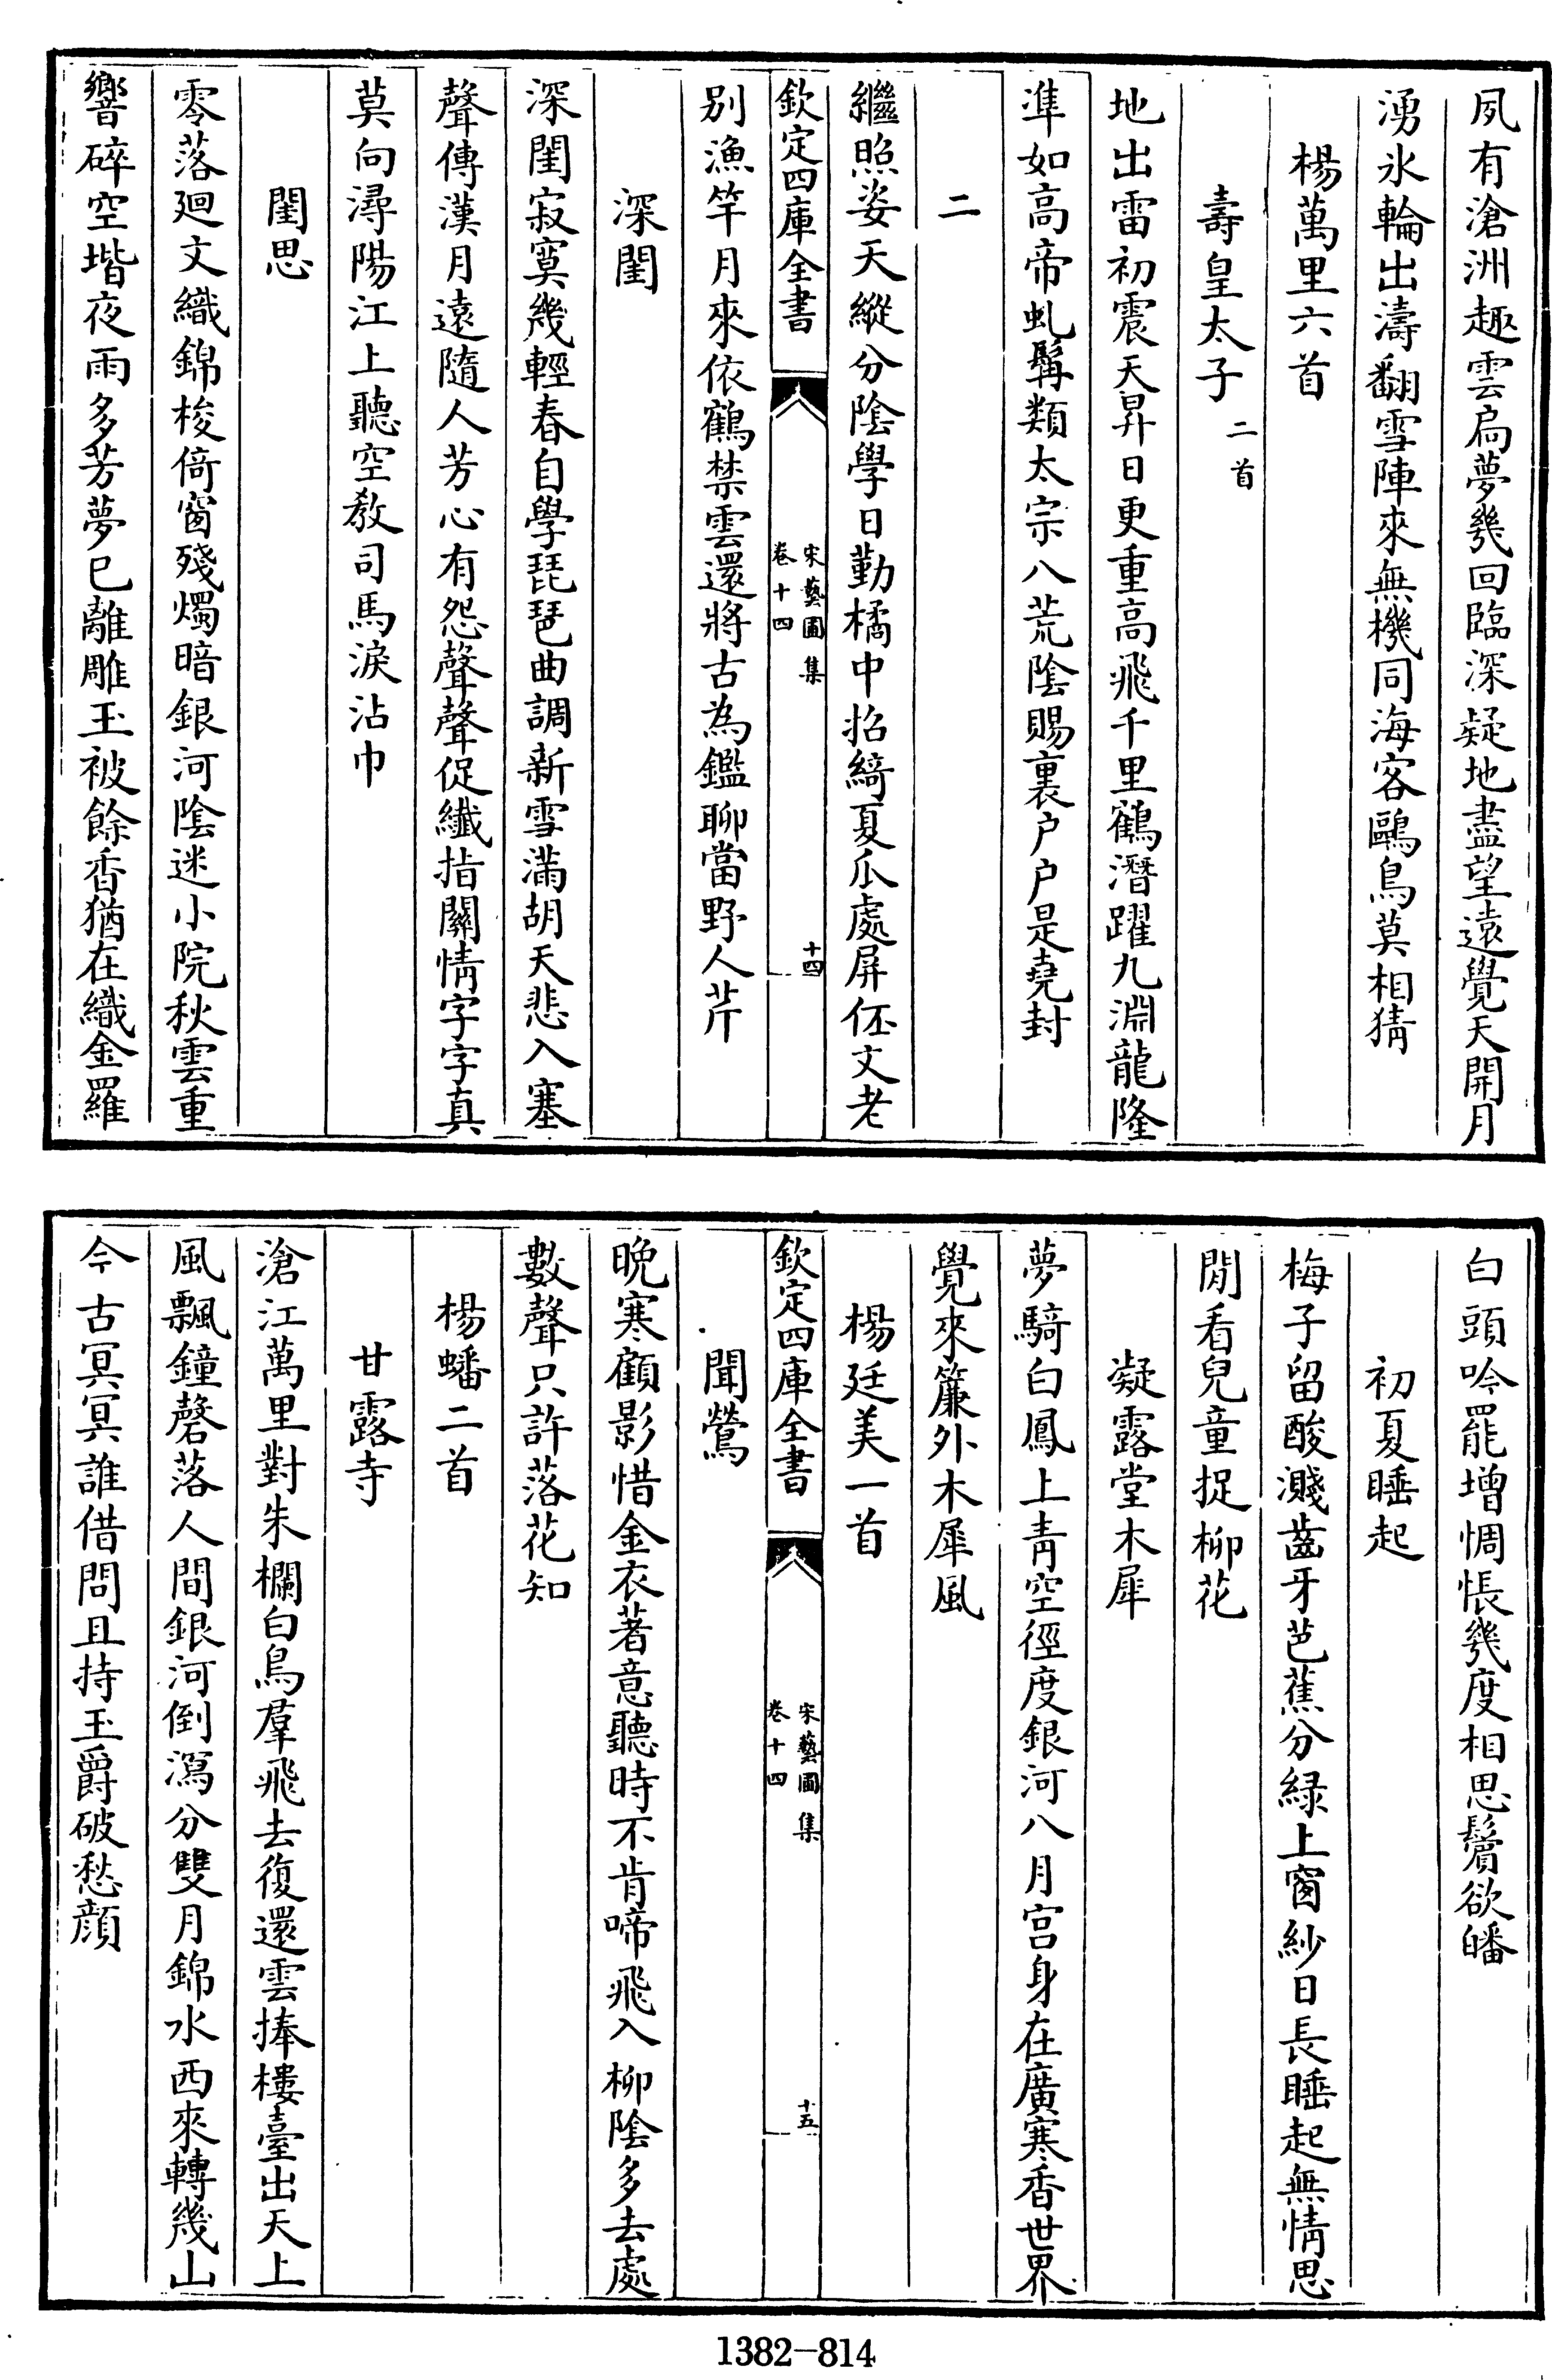 夙有滄洲趣雲扃夢幾回臨深疑地盡望遠覺天開月
湧氷輪出濤翻雪陣來無機同海客鷗鳥莫相猜
楊萬里六首
壽皇太子二首
地出雷初震天昇日更重高飛千里鶴潛躍九淵龍隆
準如高帝虬髯類太宗八荒陰賜裏户户是堯封
二
繼照姿天縱分陰學日勤橘中招綺夏瓜處屏伾文老
欽定四庫全書
宋藝圃集
卷十四
十四
别漁竿月來依鶴禁雲還將古為鑑聊當野人芹
深閨
深閨寂寞幾輕春自學琵琶曲調新雪滿胡天悲入塞
聲傳漢月遠隨人芳心有怨聲聲促纎指關情字字真
莫向潯陽江上聽空教司馬淚沾巾
閨思
零落廻文織錦梭倚窗殘燭暗銀河陰迷小院秋雲重
響碎空堦夜雨多芳夢已離雕玉被餘香猶在織金羅
白頭吟罷增惆悵幾度相思鬢欲皤
初夏睡起
梅子留酸濺齒牙芭蕉分緑上窗紗日長睡起無情思
閒看兒童捉柳花
凝露堂木犀
夢騎白鳳上青空徑度銀河八月宫身在廣寒香世界
覺來簾外木犀風
楊廷美一首
欽定四庫全書
宋藝圃集
卷十四
十五
聞鶯
晚寒顧影惜金衣著意聽時不肯啼飛入柳陰多去處
數聲只許落花知
楊蟠二首
甘露寺
滄江萬里對朱欄白鳥羣飛去復還雲捧樓臺出天上
風飄鐘磬落人間銀河倒瀉分雙月錦水西來轉幾山
今古冥冥誰借問且持玉爵破愁顔
1382-814